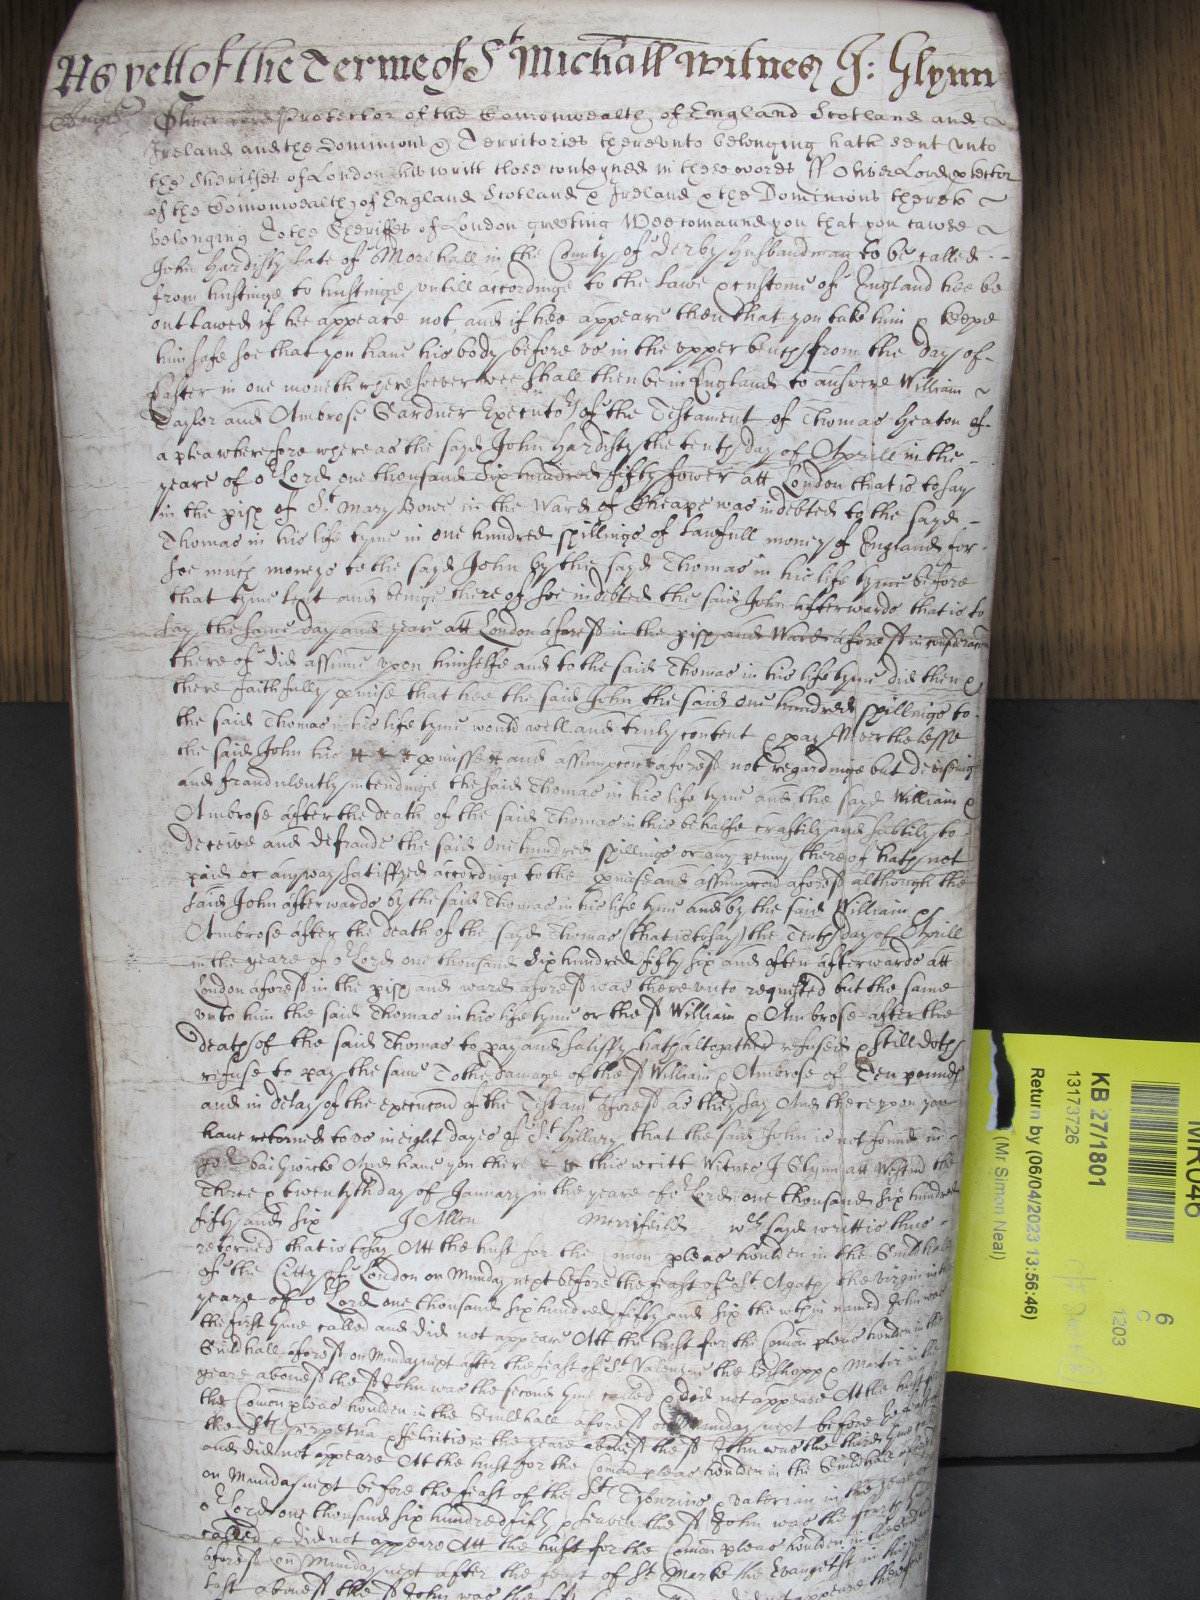 As yett of the Terme of St Michaell Witnes J: Glynn
Oliver Lord Protector of the Comonwealth of England Scotland and
Ireland and the Dominions & Territories thereunto belonging hath sent unto
the Sheriffes of London his writt close conteyned in these words ss Oliver Lord ptector
of the Comonwealth of England Scotland & Ireland & the Dominions thereto
belonging To the Sheriffes of London greeting Wee comaund you that you cause
John Hardisty late of Morehall in the County of Derby husbandman to be called
from hustinge to hustinge untill accordinge to the lawe & custome of England hee be
outlawed if hee appeare not and if hee appeare then that you take him & keepe
him safe soe that you have his body before us in the upper bench from the day of
Easter in one moneth wheresoever wee shall then be in England to answere William
Taylor and Ambrose Gardner Executors of the Testament of Thomas Heaton of
a plea wherefore whereas the sayd John Hardisty the tenth day of Aprill in the
yeare of or Lord one thousand six hundred fifty fower att London that is to say
in the pish of St Mary Bowe in the Ward of Cheape was indebted to the sayd
Thomas in his life tyme in one hundred shillings of lawfull money of England for
soe much moneys to the sayd John by the sayd Thomas in his life tyme before
that tyme lent and beinge there of soe indebted the said John afterwards that is to
say the same day and yeare att London aforesd in the pish and Ward aforesd in consideracon
there of did assume upon himselfe and to the said Thomas in his life tyme did then &
there faithfully pmise that hee the said John the said one hundred shillings to
the said Thomas in his life tyme would well and truly content & pay Neverthelesse
the said John his pmisses and assumpcon aforesd not regardinge but deviseing
and fraudulently intendinge the said Thomas in his life tyme and the sayd William &
Ambrose after the death of the said Thomas in this behalfe craftily and subtily to
deceive and defraude the said one hundred shillings or any penny there of hath not
paid or anyway satisfyed accordinge to the pmise and assumpcon aforesd although the
said John afterwards by the said Thomas in his life tyme and by the said William &
Ambrose after the death of the sayd Thomas (that is to say) the Tenth day of Aprill
in the yeare of or Lord one thousand six hundred fifty six and often afterwards att
London aforesd in the pish and ward aforesd was thereunto requested but the same
unto him the said Thomas in his life tyme or the sd William & Ambrose after the
death of the said Thomas to pay and satisfy hath altogether refused & still doth
refuse to pay the same To the damage of the sd William & Ambrose of Ten pounds
and in delay of the execucon of the Testamt aforesd as they say And thereupon you
have retorned to us in eight dayes of St Hillary that the said John is not found in
yor bailywicke And have you there this writt Witnes J Glynn att Westmr the
Three & twentyth day of January in the yeare of or Lord one thousand six hundred
fifty and six J Allen Merrifeild wch sayd writt is thus
retorned that is to say Att the hust for the Comon pleas houlden in the Guildhall
of the Citty of London on Munday next before the feast of St Agath the virgin in the
yeare of or Lord one thousand six hundred fifty and six the wthin named John was
the first tyme called and did not appeare Att the hust for the Comon pleas houlden in the
Guildhall aforesd on Munday next after the feast of St Valentine the Bishopp & Martir in the
yeare abovesd the sd John was the second tyme called & did not appeare At the hust for
the Comon pleas houlden in the Guildhall aforesd on Munday next before the feast
the Sts perpetua & felicitis in the yeare abovesd the sd John was the third tyme
and did not appeare Att the hust for the Comon pleas houlden in the Guildhall
on Munday next before the feast of the Sts Tyburius & valerian in the yeare
or Lord one thousand six hundred fifty & seaven the sd John was the fourth
called & did not appeare Att the hust for the Comon pleas houlden in the
aforesd on Munday next after the feast of St Marke the Evangelist in the
last abovesd the sd John was the did not appeare therefore
MR046
6
C
1203
KB 27/1801
13173726
Return by (06/04/2023 13:56:46)
(Mr Simon Neal)